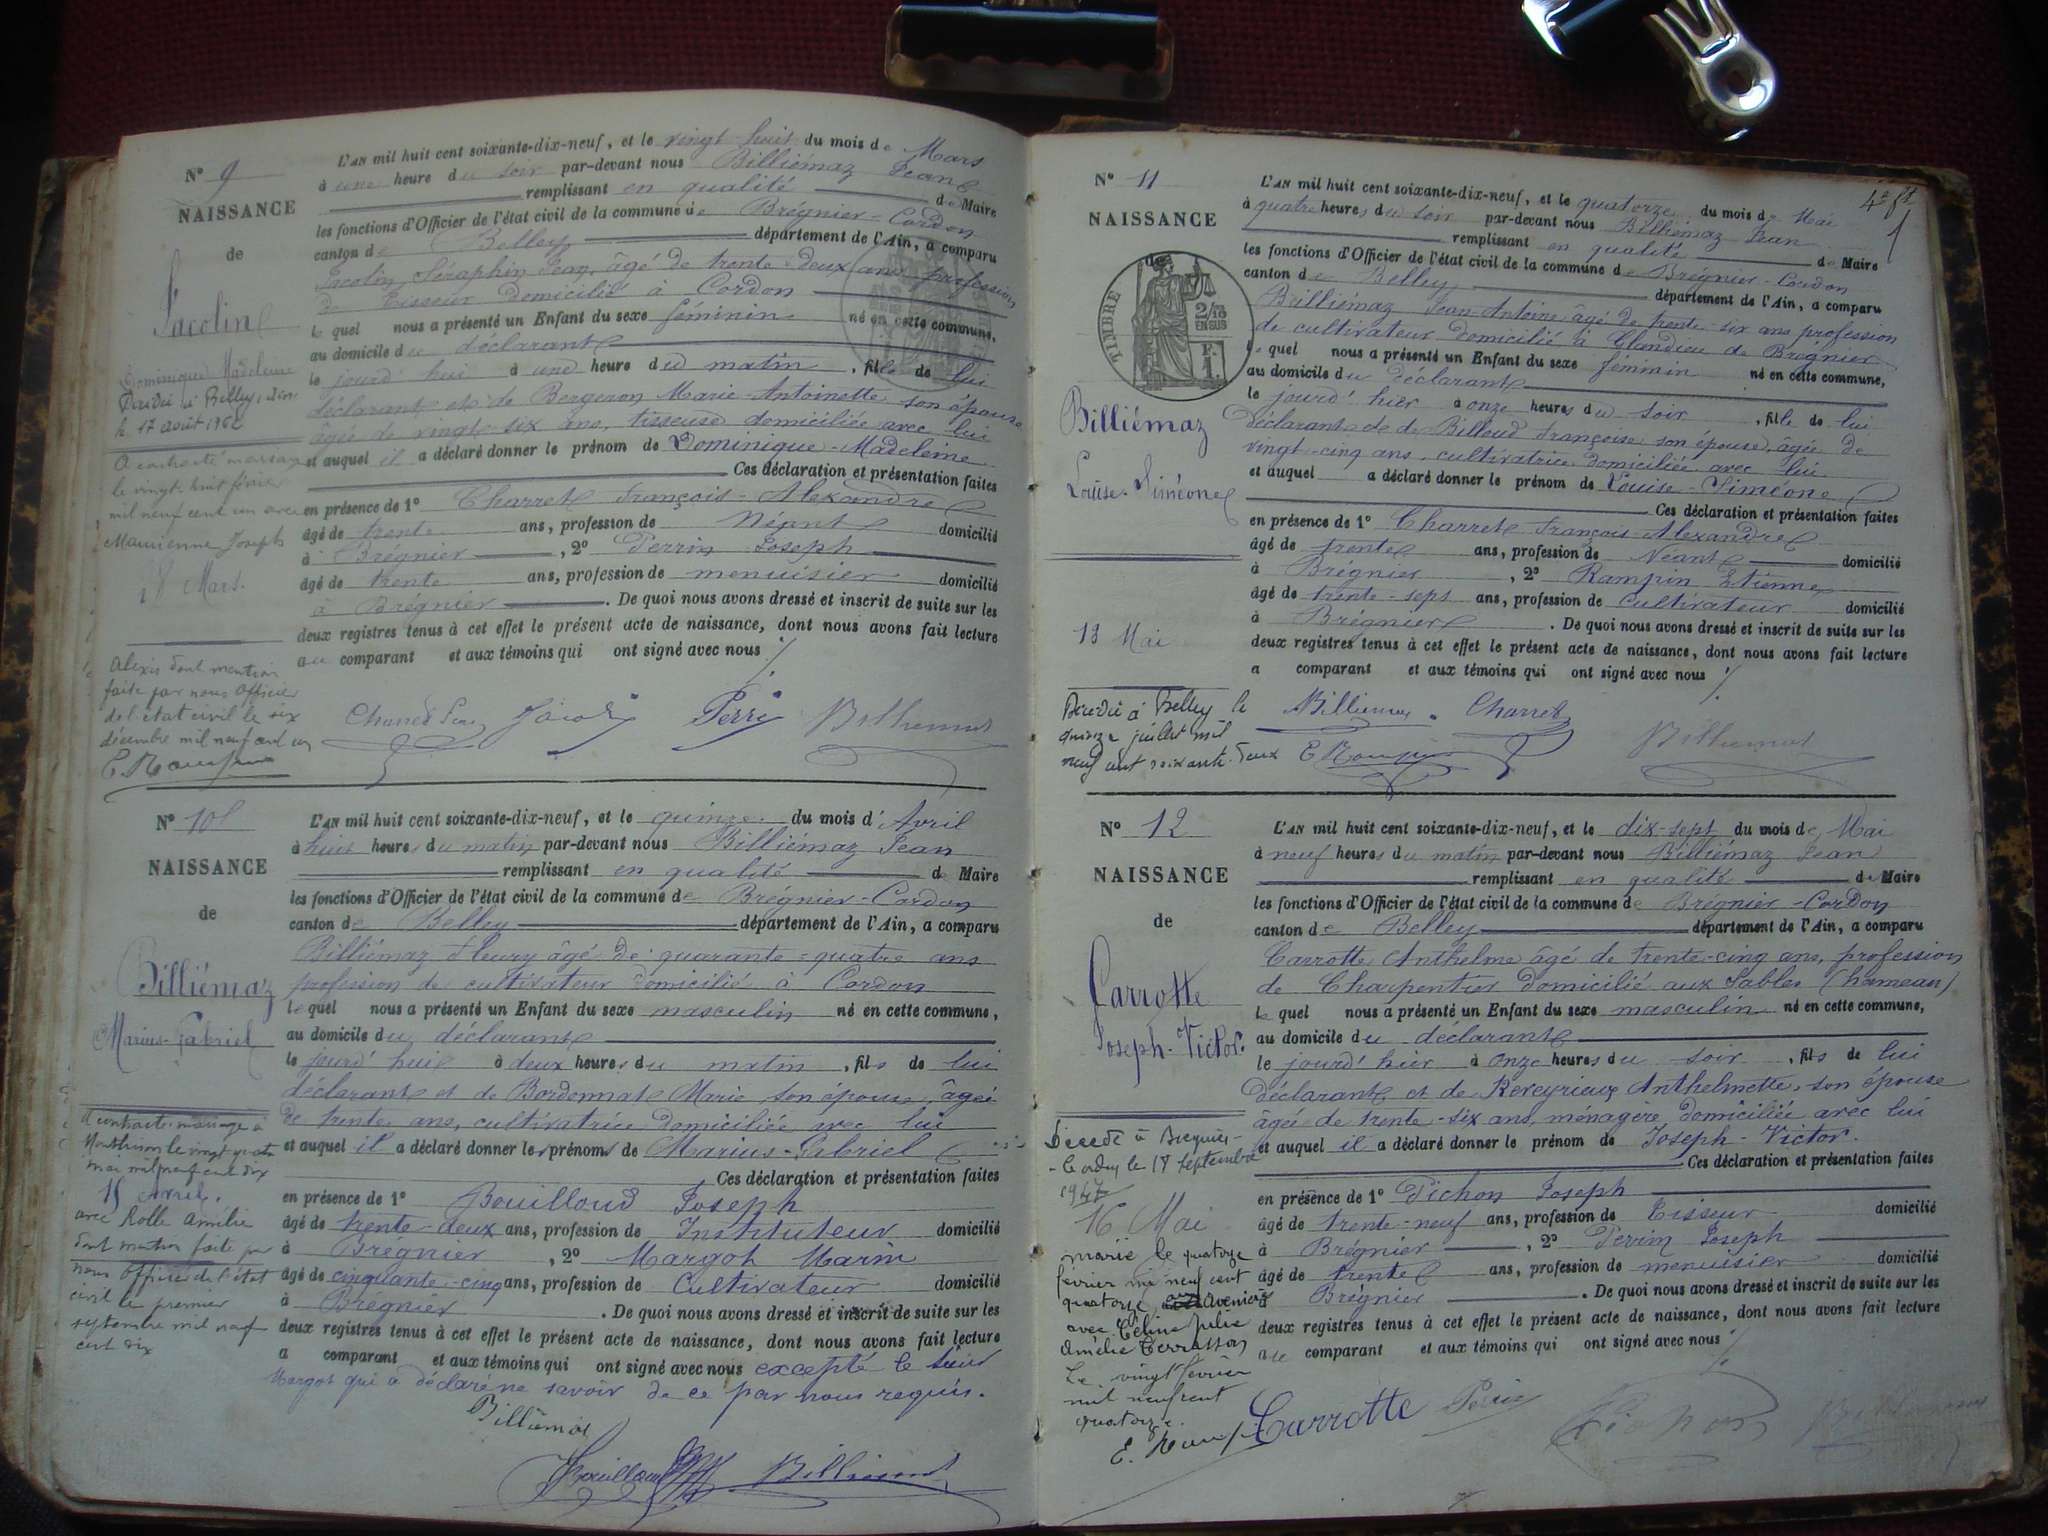 N° 9
NAISSANCE
de
Jacolin
Dominique Madeleine
Décédée à Belley, Ain
le 17 août 196
A contracté mariage
le vingt huit
mil neuf cent un avec
Maurienne Joseph
28 Mars.
Alexis dont mention
faite par nous officier
de l'état civil le six
décembre mil neuf cent un
L'AN mil huit cent soixante-dix-neuf, et le vingt-huit du mois de Mars
à une heure du soir par-devant nous Billiémaz Jean
remplissant en qualité de Maire
les fonctions d'Officier de l'état civil de la commune de Brégnier-Cordon
canton de Belley département de l'Ain, a comparu
Jacolin Séraphin Jean, âgé de trente-deux ans profession
de Tisseur domicilié à Cordon
le quel nous a présenté un Enfant du sexe féminin né en cette commune,
au domicile du déclarant
le jourd'hui à une heure du matin, fille de lui
déclarant et de Bergeron Marie-Antoinette son épouse
âgée de vingt-six ans, tisseuse domiciliée avec lui
et auquel il a déclaré donner le prénom de Dominique-Madeleine
Ces déclaration et présentation faites
en présence de 1° Charret François-Alexandre
âgé de trente ans, profession de Néant domicilié
à Brégnier, 2° Perrin Joseph
âgé de trente ans, profession de menuisier domicilié
à Brégnier. De quoi nous avons dressé et inscrit de suite sur les
deux registres tenus à cet effet le présent acte de naissance, dont nous avons fait lecture
au comparant et aux témoins qui ont signé avec nous
N° 10
NAISSANCE
de
Billiémaz
Marius-Gabriel
A contracté mariage à
Montbrison le vingt quatre
mai mil neuf cent dix
15 Avril.
avec Rolle Amélie
dont mention faite par
nous Officier de l'état
civil le premier
septembre mil neuf
cent dix
L'AN mil huit cent soixante-dix-neuf, et le quinze du mois d'Avril
à huit heures du matin par-devant nous Billiémaz Jean
remplissant en qualité de Maire
les fonctions d'Officier de l'état civil de la commune de Brégnier-Cordon
canton de Belley département de l'Ain, a comparu
Billiémaz Fleury âgé de quarante-quatre ans
profession de cultivateur domicilié à Cordon
le quel nous a présenté un Enfant du sexe masculin né en cette commune,
au domicile du déclarant
le jourd'hui à deux heures du matin, fils de lui
déclarant et de Bordennat Marie son épouse, âgée
de trente ans, cultivatrice domiciliée avec lui
et auquel il a déclaré donner les prénoms de Marius-Gabriel
Ces déclaration et présentation faites
en présence de 1° Bouilloud Joseph
âgé de trente-deux ans, profession de Instituteur domicilié
à Brégnier, 2° Margot Marin
âgé de cinquante-cinq ans, profession de Cultivateur domicilié
à Brégnier. De quoi nous avons dressé et inscrit de suite sur les
deux registres tenus à cet effet le présent acte de naissance, dont nous avons fait lecture
a comparant et aux témoins qui ont signé avec nous excepté le sieur
Margot qui a déclaré ne savoir de ce par nous requis.
N° 11
NAISSANCE
de
TIMBRE
2/10
EN SUS
F.
1.
Billiémaz
Louise-Siméone
13 Mai
Décédée à Belley le
quinze juillet mil
neuf cent soixante-deux
L'AN mil huit cent soixante-dix-neuf, et le quatorze du mois de Mai
à quatre heures du soir par-devant nous Billiémaz Jean
remplissant en qualité de Maire
les fonctions d'Officier de l'état civil de la commune de Brégnier-Cordon
canton de Belley département de l'Ain, a comparu
Billiémaz Jean-Antoine âgé de trente-six ans profession
de cultivateur domicilié à Glandieu de Brégnier
le quel nous a présenté un Enfant du sexe féminin né en cette commune,
au domicile du déclarant
le jourd'hier à onze heures du soir, fille de lui
déclarant et de Billoud Françoise son épouse, âgée de
vingt-cinq ans, cultivatrice domiciliée avec lui
et auquel a déclaré donner le prénom de Louise-Siméone
Ces déclaration et présentation faites
en présence de 1° Charret François-Alexandre
âgé de trente ans, profession de Néant domicilié
à Brégnier, 2° Rampin Etienne
âgé de trente-sept ans, profession de Cultivateur domicilié
à Brégnier. De quoi nous avons dressé et inscrit de suite sur les
deux registres tenus à cet effet le présent acte de naissance, dont nous avons fait lecture
a comparant et aux témoins qui ont signé avec nous
Charret
N° 12
NAISSANCE
de
Carrotte
Joseph-Victor
Décédé à Brégnier-
-Cordon le 18 septembre
1947
16 Mai
marié le quatorze
février mil neuf cent
quatorze
avec Céline Julie
Amélie Terrasson
Le vingt février
mil neuf cent
quatorze.
L'AN mil huit cent soixante-dix-neuf, et le dix-sept du mois de Mai
à neuf heures du matin par-devant nous Billiémaz Jean
remplissant en qualité de Maire
les fonctions d'Officier de l'état civil de la commune de Brégnier-Cordon
canton de Belley département de l'Ain, a comparu
Carrotte Anthelme âgé de trente-cinq ans, profession
de Charpentier domicilié aux Sables (hameau)
le quel nous a présenté un Enfant du sexe masculin né en cette commune,
au domicile du déclarant
le jourd'hier à onze heures du soir, fils de lui
déclarant et de Reveyrieux Anthelmette, son épouse
âgée de trente-six ans, ménagère domiciliée avec lui
et auquel il a déclaré donner le prénom de Joseph-Victor.
Ces déclaration et présentation faites
en présence de 1° Pichon Joseph
âgé de trente-neuf ans, profession de Tisseur domicilié
à Brégnier, 2° Perrin Joseph
âgé de trente ans, profession de menuisier domicilié
à Brégnier. De quoi nous avons dressé et inscrit de suite sur les
deux registres tenus à cet effet le présent acte de naissance, dont nous avons fait lecture
au comparant et aux témoins qui ont signé avec nous
Carrotte